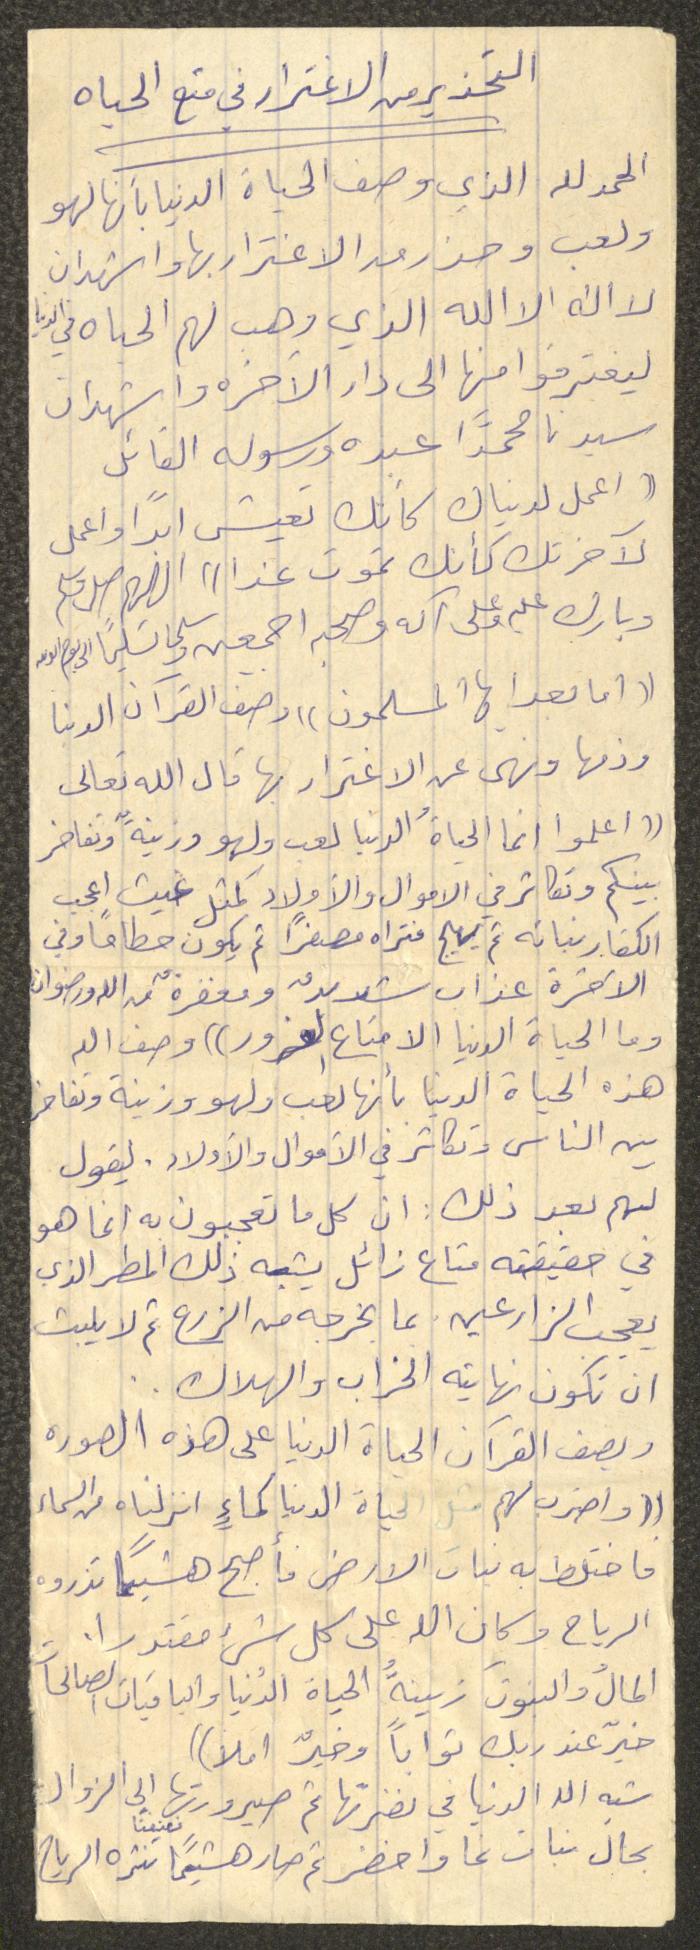 التحذير من الاغترار في متع الحياه
الحمد لله الذي وصف الحياة الدنيا بأنها لهو
ولعب وحذر من الاغترار بها واشهد ان
لا اله الا الله الذي وهب لهم الحياه في الدنيا
ليغترفوا منها الى دار الآخره واشهد ان
سيدنا محمدًا عبده ورسوله القائل
(( اعمل لدنياك كأنك تعيش ابدًا واعمل
لآخرتك كأنك تموت غدا )) اللهم صل وسلم
وبارك عليه وعلى آله وصحبه اجمعين وسلم تسليمًا الى يوم الدين
(( اما بعد ايها المسلمون )) وصف القرآن الدنيا
وذمها ونهى عن الاغترار بها قال الله تعالى
(( اعلموا انما الحياةُ الدنيا لعب ولهو وزينةٌ وتفاخر
بينكم وتكاثر في الاموال والأولاد كمثل غيث اعجب
الكفار نباته ثم يهيج فتراه مصفرًا ثم يكون حطامًا وفي
الآخرة عذاب شديدٌ ومغفرةٌ من الله ورضوان
وما الحياة الدنيا الا متاع الغرور )) وصف الله
هذه الحياة الدنيا بأنها لعب ولهو وزينة وتفاخر
بين الناس وتكاثر في الأموال والأولاد . ليقول
لهم بعد ذلك : ان كل ما تعجبون به انما هو
في حقيقته متاع زائل يشبه ذلك المطر الذي
يعجب الزارعين . بما يخرجه من الزرع ثم لا يلبث
ان تكون نهايته الخراب والهلاك ..
ويصف القرآن الحياة الدنيا على هذه الصوره
(( واضرب لهم مثل الحياة الدنيا كماءٍ انزلناه من السماء
فاختلط به نبات الارض فأصبح هشيمًا تذروه
الرياح وكان الله على كل شئ مقتدرا .
المالُ والبنونَ زينةُ الحياة الدُنيا والباقيات الصالحاتُ
خيرٌ عند ربك ثواباً وخيرٌ املا ))
شبه الله الدنيا في نضرتها ثم صيرورتها الى الزوال
بحال نبات نما واخضر ثم صار هشيمًا تنثره الرياح